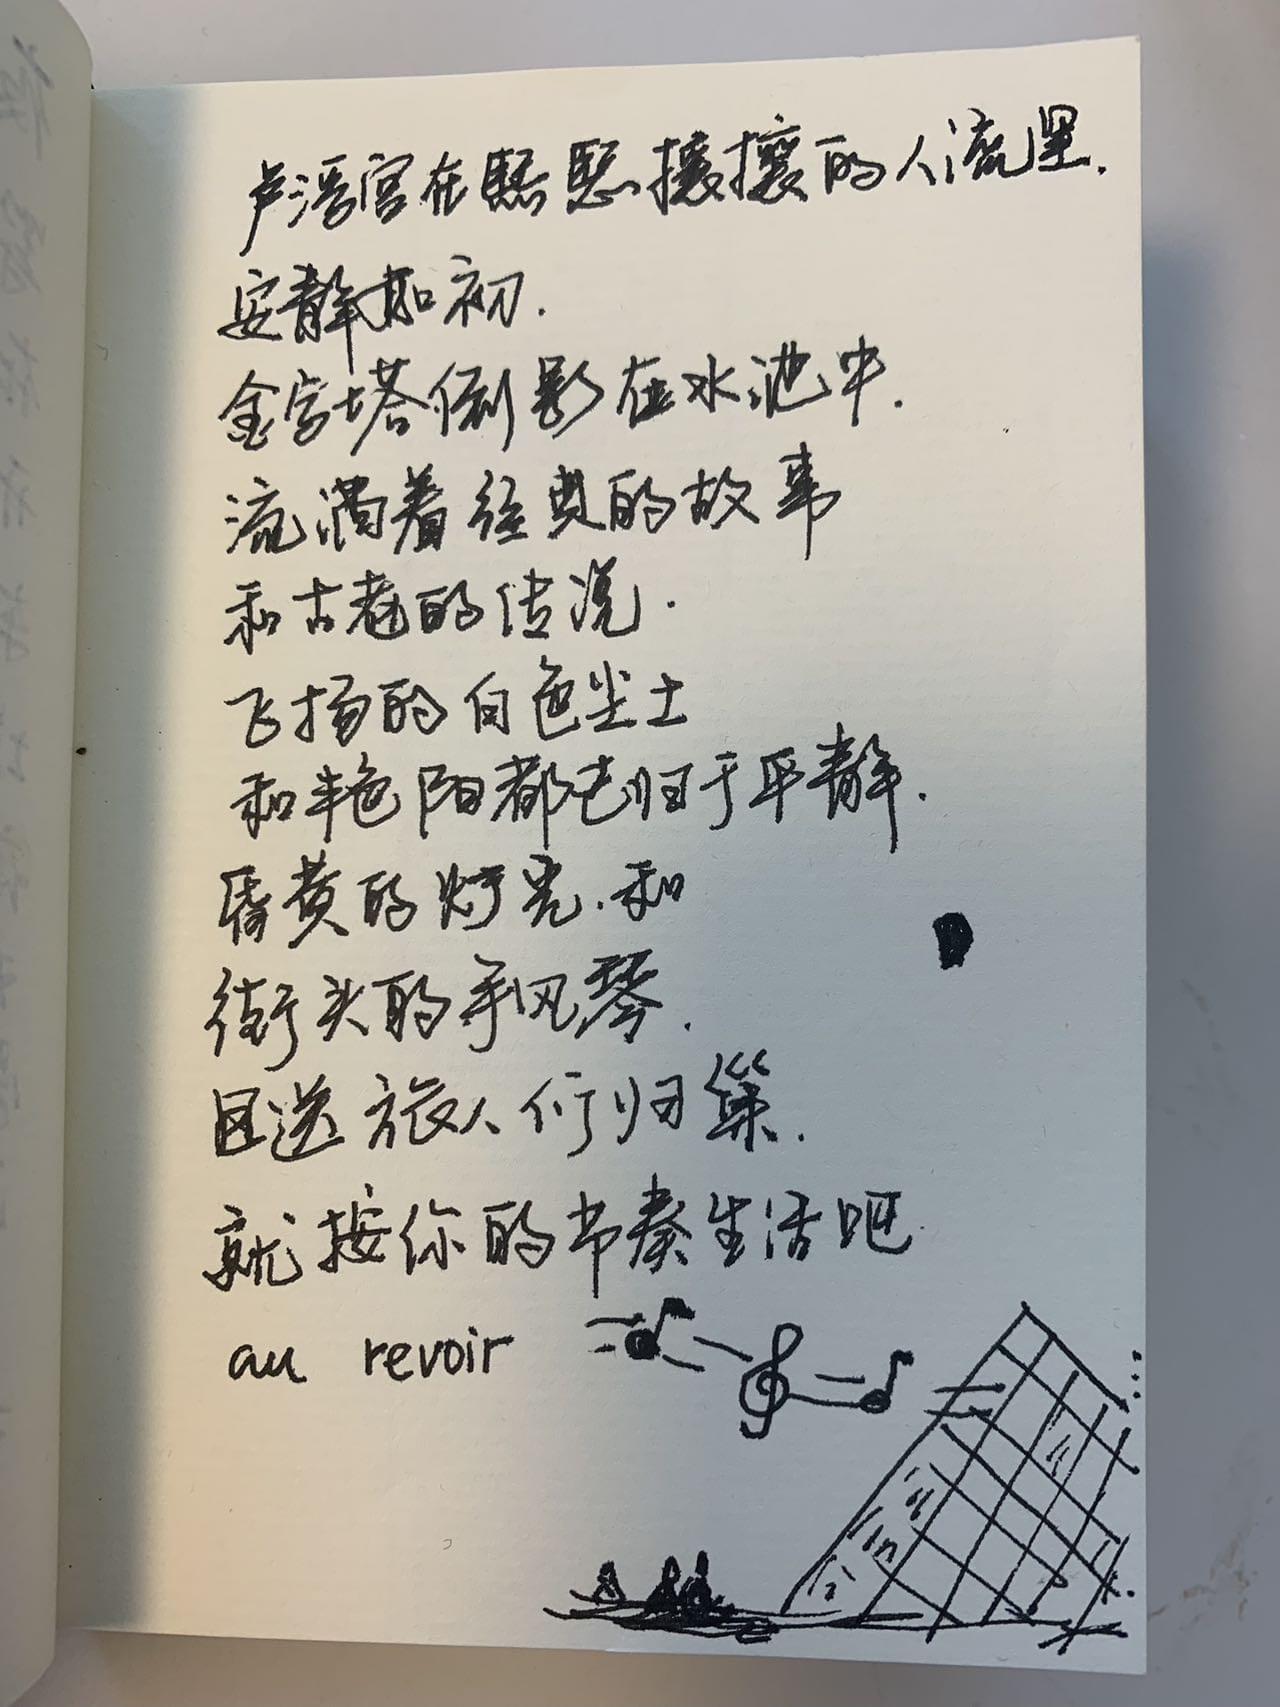 卢浮宫在熙熙攘攘的人流里.
安静如初.
金字塔倒影在水池中.
流淌着经典的故事
和古老的传说.
飞扬的白色尘土
和艳阳都已归于平静.
昏黄的灯光.和
街头的手风琴.
目送旅人们归巢.
就按你的节奏生活吧
au revoir